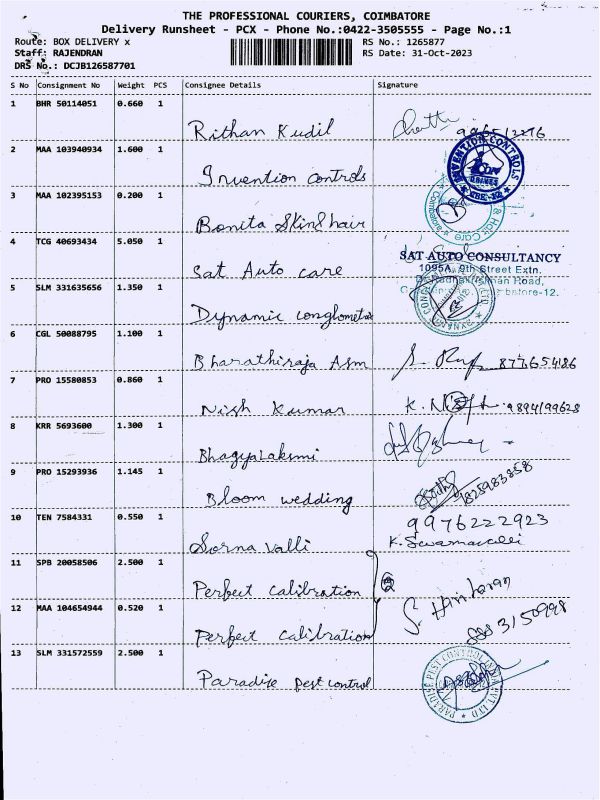 THE PROFESSIONAL COURIERS, COIMBATORE
Delivery Runsheet - PCX - Phone No.:0422-3505555 - Page No.:1
Route: BOX DELIVERY x RS No.: 1265877
Staff: RAJENDRAN RS Date: 31-Oct-2023
DRS No.: DCJB126587701
S No Consignment No Weight PCS Consignee Details Signature
1 BHR 50114051 0.660 1
Rithan Kudil
2 MAA 103940934 1.600 1
Invention controls
INVENTION CONTROLS
3 MAA 102395153 0.200 1
Bonita Skin & hair
& Hair Care
4 TCG 40693434 5.050 1
Sat Auto care
SAT AUTO CONSULTANCY
1095A, 9th Street Extn.
5 SLM 331635656 1.350 1
Road,
batore-12.
Dynamic
6 CGL 50088795 1.100 1
Bharathiraja Asm 877654186
7 PRO 15580853 0.860 1
Nish Kumar K. 9894199628
8 KRR 5693600 1.300 1
Bhagyalaksmi
9 PRO 15293936 1.145 1
Bloom wedding
10 TEN 7584331 0.550 1 9976222923
Sorna valli K.
11 SPB 20058506 2.500 1
Perfect calibration
12 MAA 104654944 0.520 1 S. Hariharan
Perfect calibration
13 SLM 331572559 2.500 1
Paradise pest control
PARADISE PEST CONTROL PVT LTD